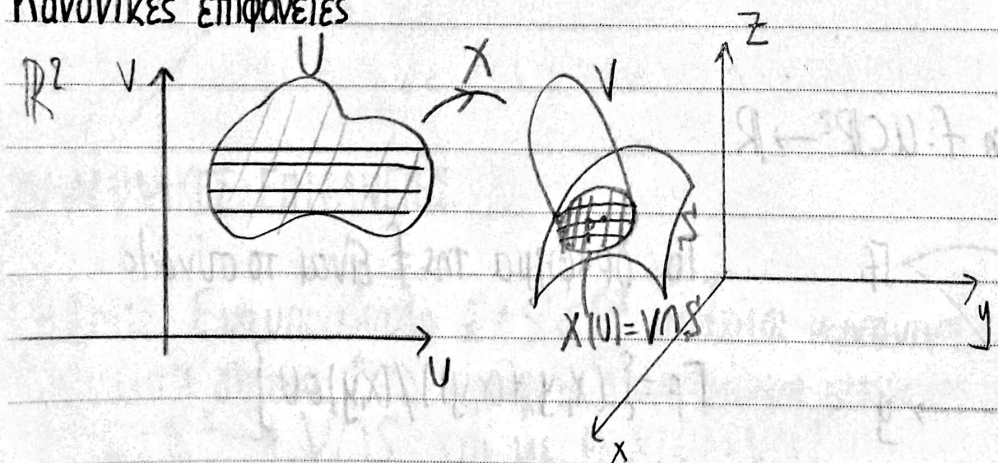 Κανονικές επιφάνειες
ℝ² V U X V Z
S
X(U)=V∩S
y
U
x